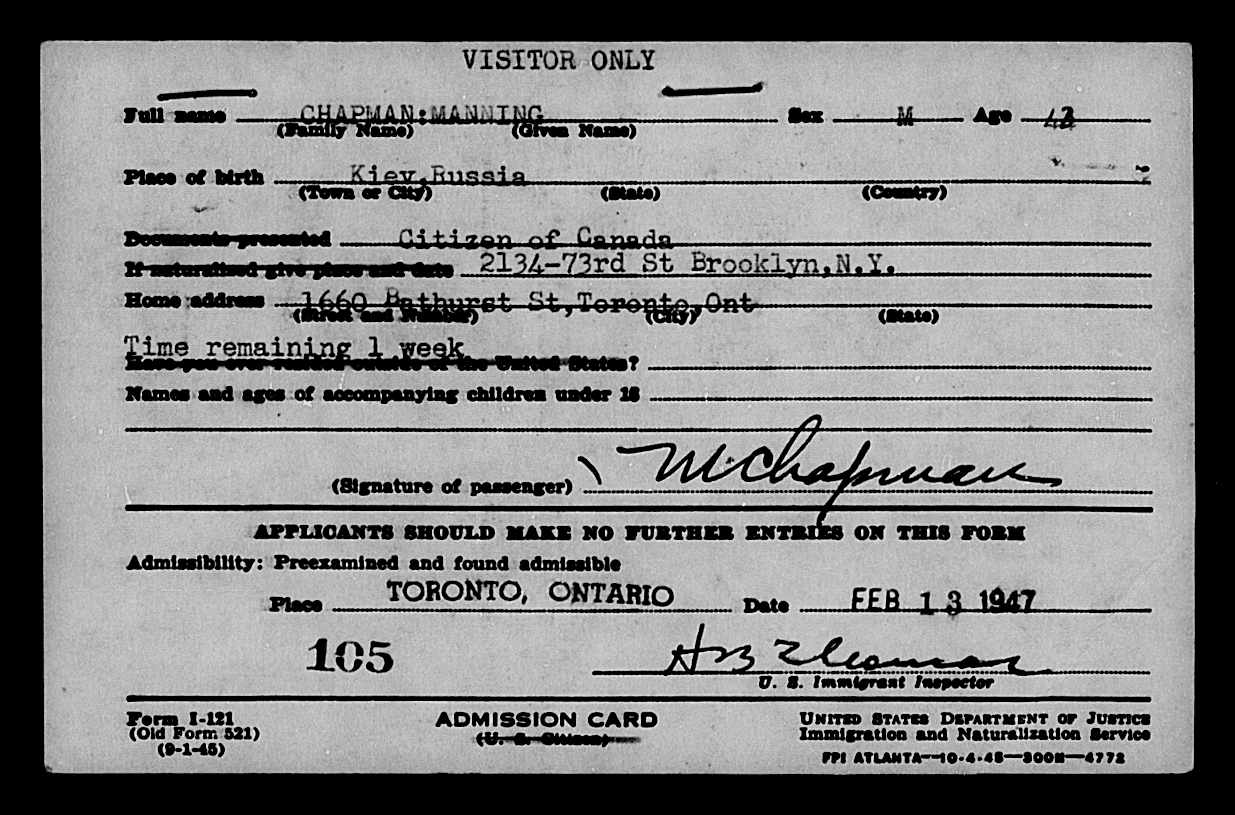 VISITOR ONLY
Full name CHAPMAN:MANNING Sex M Age
(Family Name) (Given Name)
Place of birth Kiev,Russia
(Town or City) (State) (Country)
Documents presented Citizen of Canada
If naturalized give place and date 2134-73rd St Brooklyn,N.Y.
Home address 1660 Bathurst St,Toronto,Ont
(Street and Number) (City) (State)
Time remaining 1 week
Have you ever resided outside of the United States?
Names and ages of accompanying children under 16
(Signature of passenger) M Chapman
APPLICANTS SHOULD MAKE NO FURTHER ENTRIES ON THIS FORM
Admissibility: Preexamined and found admissible
Place TORONTO, ONTARIO Date FEB 13 1947
105
U. S. Immigrant Inspector
Form I-121 ADMISSION CARD UNITED STATES DEPARTMENT OF JUSTICE
(Old Form 521) (U. S. Citizen) Immigration and Naturalization Service
(9-1-45)
FPI ATLANTA—10-4-45—300M—4772